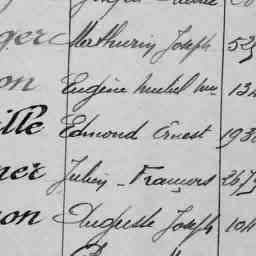 ger Mathurin Joseph 525
on Eugène Michel 134
ille Edmond Ernest 1930
ner Julien - François 2673
on Auguste Joseph 104